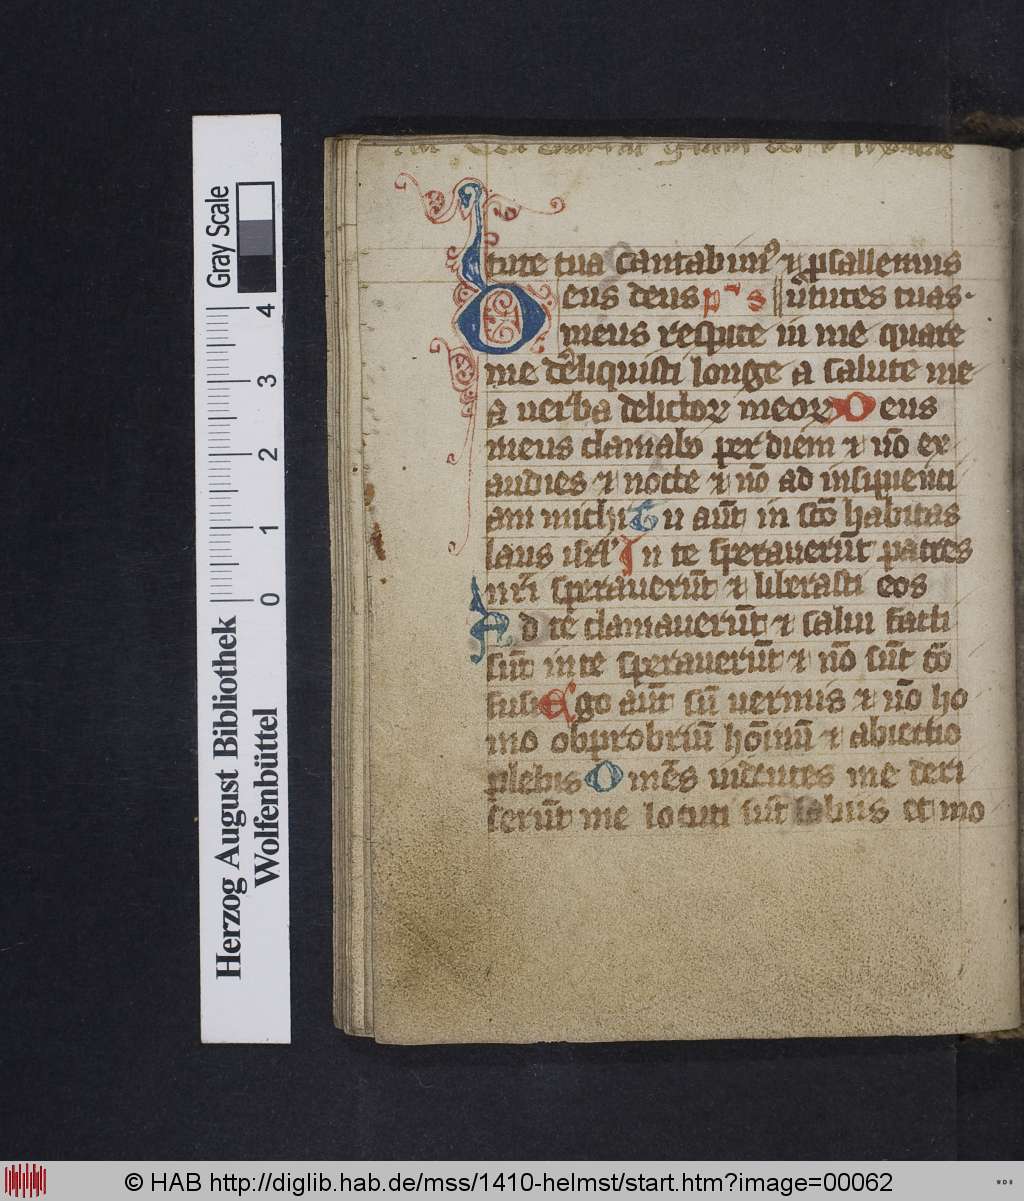 tute tua cantabim⁹ ⁊ psallemus
Deus deus p s ūtutes tuas·
meus respice in me quare
me dereliquisti longe a salute me
a uerba delictoꝝ meoꝝ Deus
meus clamabo per diem ⁊ nō ex
audies ⁊ nocte ⁊ nō ad insipienti
am michi Tu aūt in scō habitas
laus isrl' In te sperauerūt patres
nr̄i sperauerūt ⁊ liberasti eos
Ad te clamauerūt ⁊ salui facti
sūt in te sperauerūt ⁊ nō sūt cō
fusi Ego aūt sū uermis ⁊ nō ho
mo obprobriū hōinū ⁊ abiectio
plebis Omēs uidentes me deri
serūt me locuti sūt labiis et mo
Gray Scale
0 1 2 3 4
Herzog August Bibliothek
Wolfenbüttel
© HAB http://diglib.hab.de/mss/1410-helmst/start.htm?image=00062